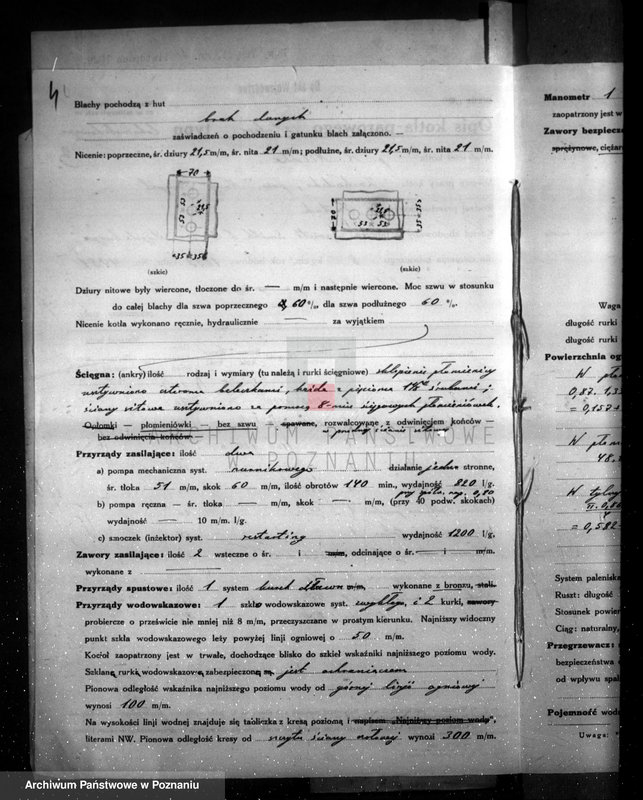 4
Blachy pochodzą z hut
brak danych
zaświadczeń o pochodzeniu i gatunku blach załączono. —
Nicenie: poprzeczne, śr. dziury 21,5 m/m, śr. nita 21 m/m; podłużne, śr. dziury 21,5 m/m, śr. nita 21 m/m.
70
53 53
21,5
35 35
(szkic)
70
21,5
53 53
35 35
(szkic)
Dziury nitowe były wiercone, tłoczone do śr. — m/m i następnie wiercone. Moc szwu w stosunku
do całej blachy dla szwa poprzecznego 60 %, dla szwa podłużnego 60 %.
Nicenie kotła wykonano ręcznie, hydraulicznie — za wyjątkiem
Ścięgna: (ankry) ilość rodzaj i wymiary (tu należą i rurki ścięgniowe) sklepienie płomienicy
wzmocniono czterema beleczkami, każda z pięcioma śrubami;
ściany sitowe wzmocniono za pomocą 8-miu płomieniówek.
Opłomki płomieniówki — bez szwu — spawane, rozwalcowane, z odwinięciem końców —
bez odwinięcia końców.
Przyrządy zasilające: ilość dwa
a) pompa mechaniczna syst. nurnikowego działanie jedno stronne,
śr. tłoka 51 m/m, skok 60 m/m, ilość obrotów 140 min, wydajność 820 l/g.
b) pompa ręczna — śr. tłoka — m/m, skok — m/m, (przy 40 podw. skokach)
wydajność — 10 m/m. l/g.
c) smoczek (inżektor) syst. restarting wydajność 1200 l/g,
Zawory zasilające: ilość 2 wsteczne o śr. — i — m/m, odcinające o śr. — i m/m.
wykonane z
Przyrządy spustowe: ilość 1 system kurek dławn. m/m, wykonane z bronzu, stali.
Przyrządy wodowskazowe: 1 szkło wodowskazowe syst. zwykłego, i 2 kurki, zawory
probiercze o prześwicie nie mniej niż 8 m/m, przeczyszczane w prostym kierunku. Najniższy widoczny
punkt szkła wodowskazowego leży powyżej linji ogniowej o 50 m/m.
Kocioł zaopatrzony jest w trwałe, dochodzące blisko do szkieł wskaźniki najniższego poziomu wody.
Szklana rurka wodowskazowa, zabezpieczona jest ochraniaczem
Pionowa odległość wskaźnika najniższego poziomu wody od górnej linji ogniowej
wynosi 100 m/m.
Na wysokości linji wodnej znajduje się tabliczka z kresą poziomą i napisem „Najniższy poziom wody",
literami NW. Pionowa odległość kresy od szczytu ściany wynosi 300 m/m.
Manometr 1
zaopatrzony jest w
Zawory bezpiecze
sprężynowe, cięża
Waga
długość rurki
długość rurki
Powierzchnia og
W
0,87. 1,3
= 0,157+
W
48.
W
= 0,582
System paleniska
Ruszt: długość
Stosunek powier
Ciąg: naturalny,
Przegrzewacz:
bezpieczeństwa
od wpływu spal
Pojemność wod
Uwaga:
ARCHIWUM PAŃSTWOWE W
POZNANIU
Archiwum Państwowe w Poznaniu